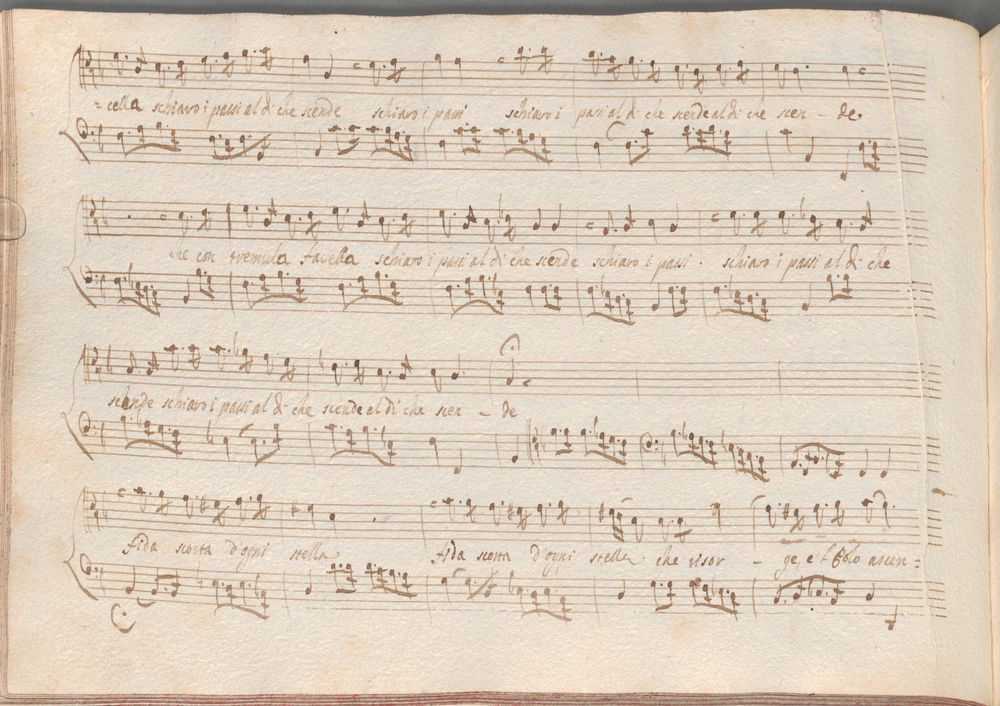 =cella schiaro i passi al dì che scende schiaro i passi schiaro i passi al dì che scende al dì che scen - de
che con tremula favella schiaro i passi al dì che scende schiaro i passi . schiaro i passi al dì che
scende schiaro i passi al dì che scende al dì che scen - de
fida scorta d'ogni stella fida scorta d'ogni stella che risor - ge, e